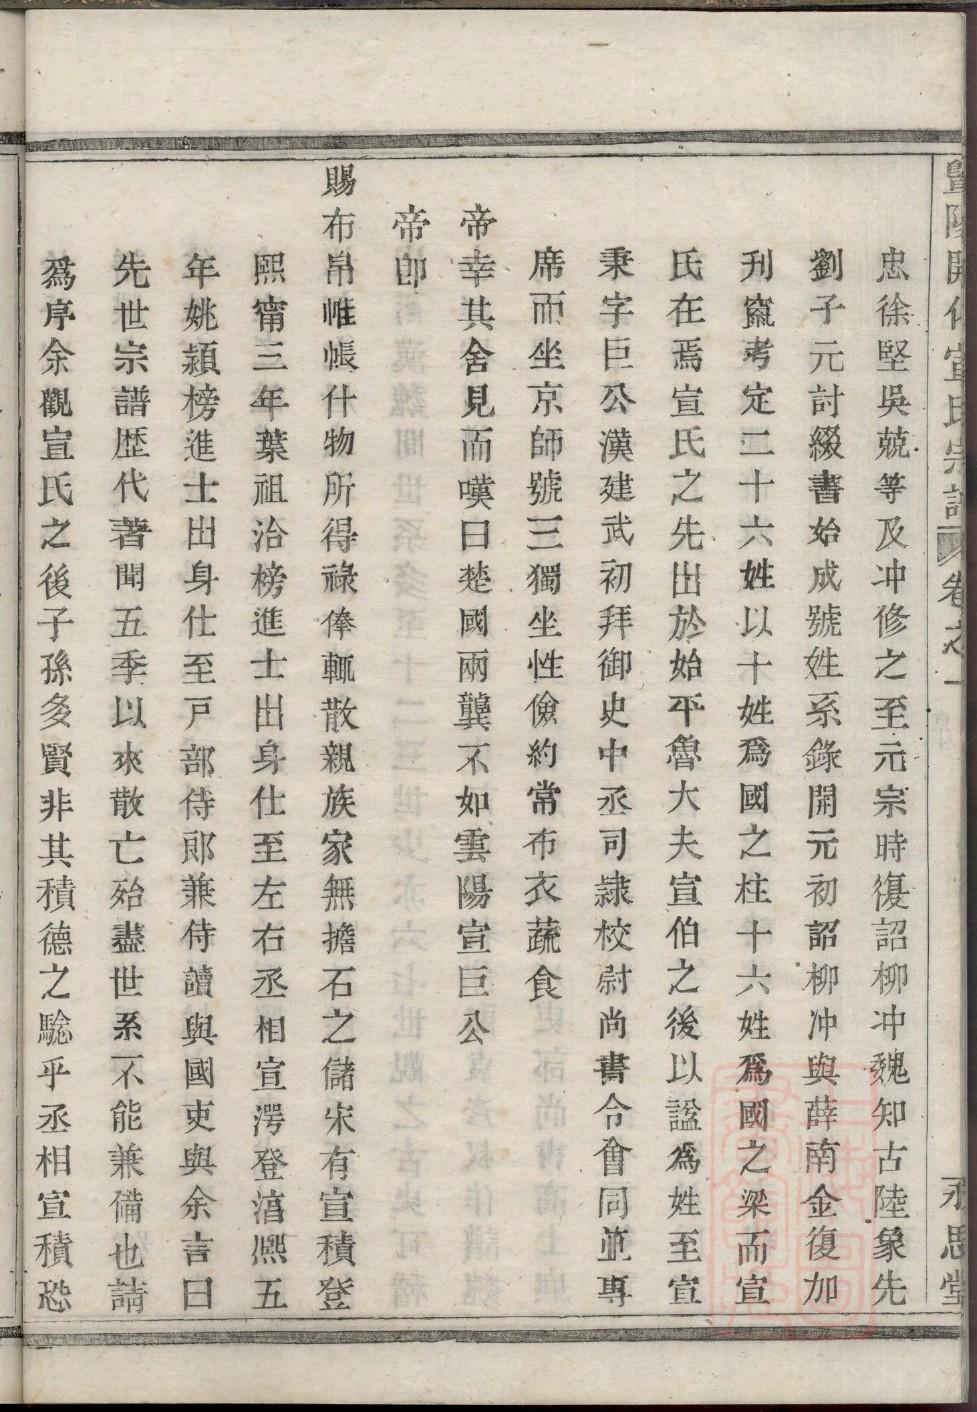 暨陽開化宣氏宗譜 卷之一 永思堂
忠徐堅吳兢等及冲修之至元宗時復詔柳冲魏知古陸象先
劉子元討綴書始成號姓系錄開元初詔柳冲與薛南金復加
刋竄考定二十六姓以十姓爲國之柱十六姓爲國之梁而宣
氏在焉宣氏之先出於始平魯大夫宣伯之後以諡爲姓至宣
秉字巨公漢建武初拜御史中丞司隷校尉尚書令會同並專
席而坐京師號三獨坐性儉約常布衣蔬食
帝幸其舍見而嘆曰楚國兩龔不如雲陽宣巨公
帝卽
賜布帛帷帳什物所得祿俸輒散親族家無擔石之儲宋有宣積登
熙甯三年葉祖洽榜進士出身仕至左右丞相宣澇登淳熙五
年姚潁榜進士出身仕至戸部侍郞兼侍讀與國吏與余言曰
先世宗譜歴代著聞五季以來散亡殆盡世系不能兼備也請
爲序余觀宣氏之後子孫多賢非其積德之騐乎丞相宣積恐